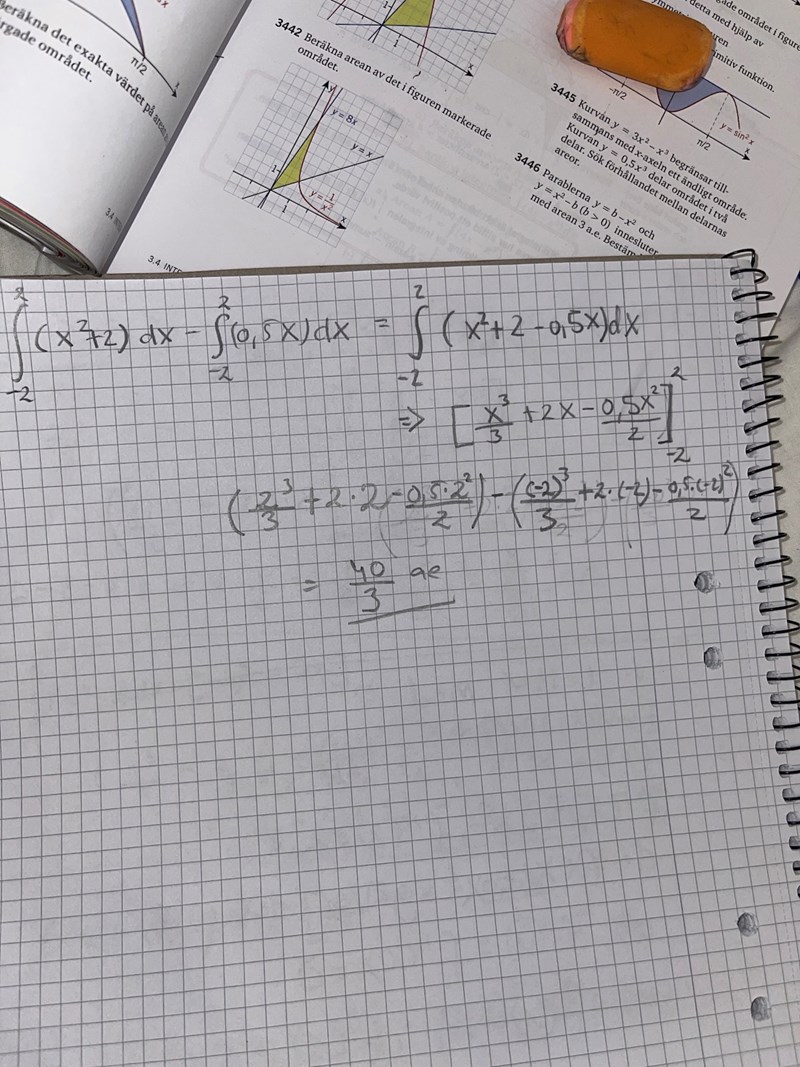 Beräkna det exakta värdet på
rgade området.
π/2
x
3442 Beräkna arean av det i figuren markerade
området.
y
y = 8x
y = x
1
1
y = 1/x²
x
3.4
detta med hjälp av
mitiv funktion.
-π/2
π/2
y = sin² x
x
3445 Kurvan y = 3x² – x³ begränsar till-
sammans med x-axeln ett ändligt område.
Kurvan y = 0,5x³ delar området i två
delar. Sök förhållandet mellan delarnas
areor.
3446 Parablerna y = b – x² och
y = x² – b (b > 0) innesluter
med arean 3 a.e. Bestäm
∫₋₂² (x²+2) dx – ∫₋₂² (0,5x) dx = ∫₋₂² (x²+2 – 0,5x) dx
=> [x³/3 + 2x – 0,5x²/2]₋₂²
(2³/3 + 2·2 – 0,5·2²/2) – ((-2)³/3 + 2·(-2) – 0,5·(-2)²/2)
= 40/3 ae